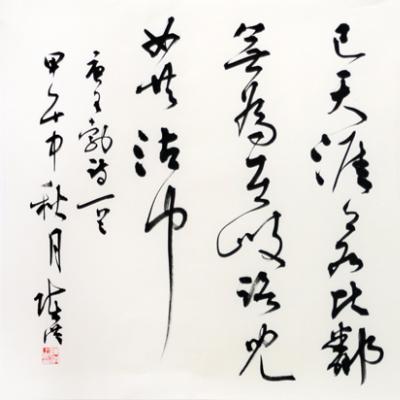 己天涯若比鄰
無為在歧路兒
女共沾巾
唐王勃詩一首
甲午中秋月